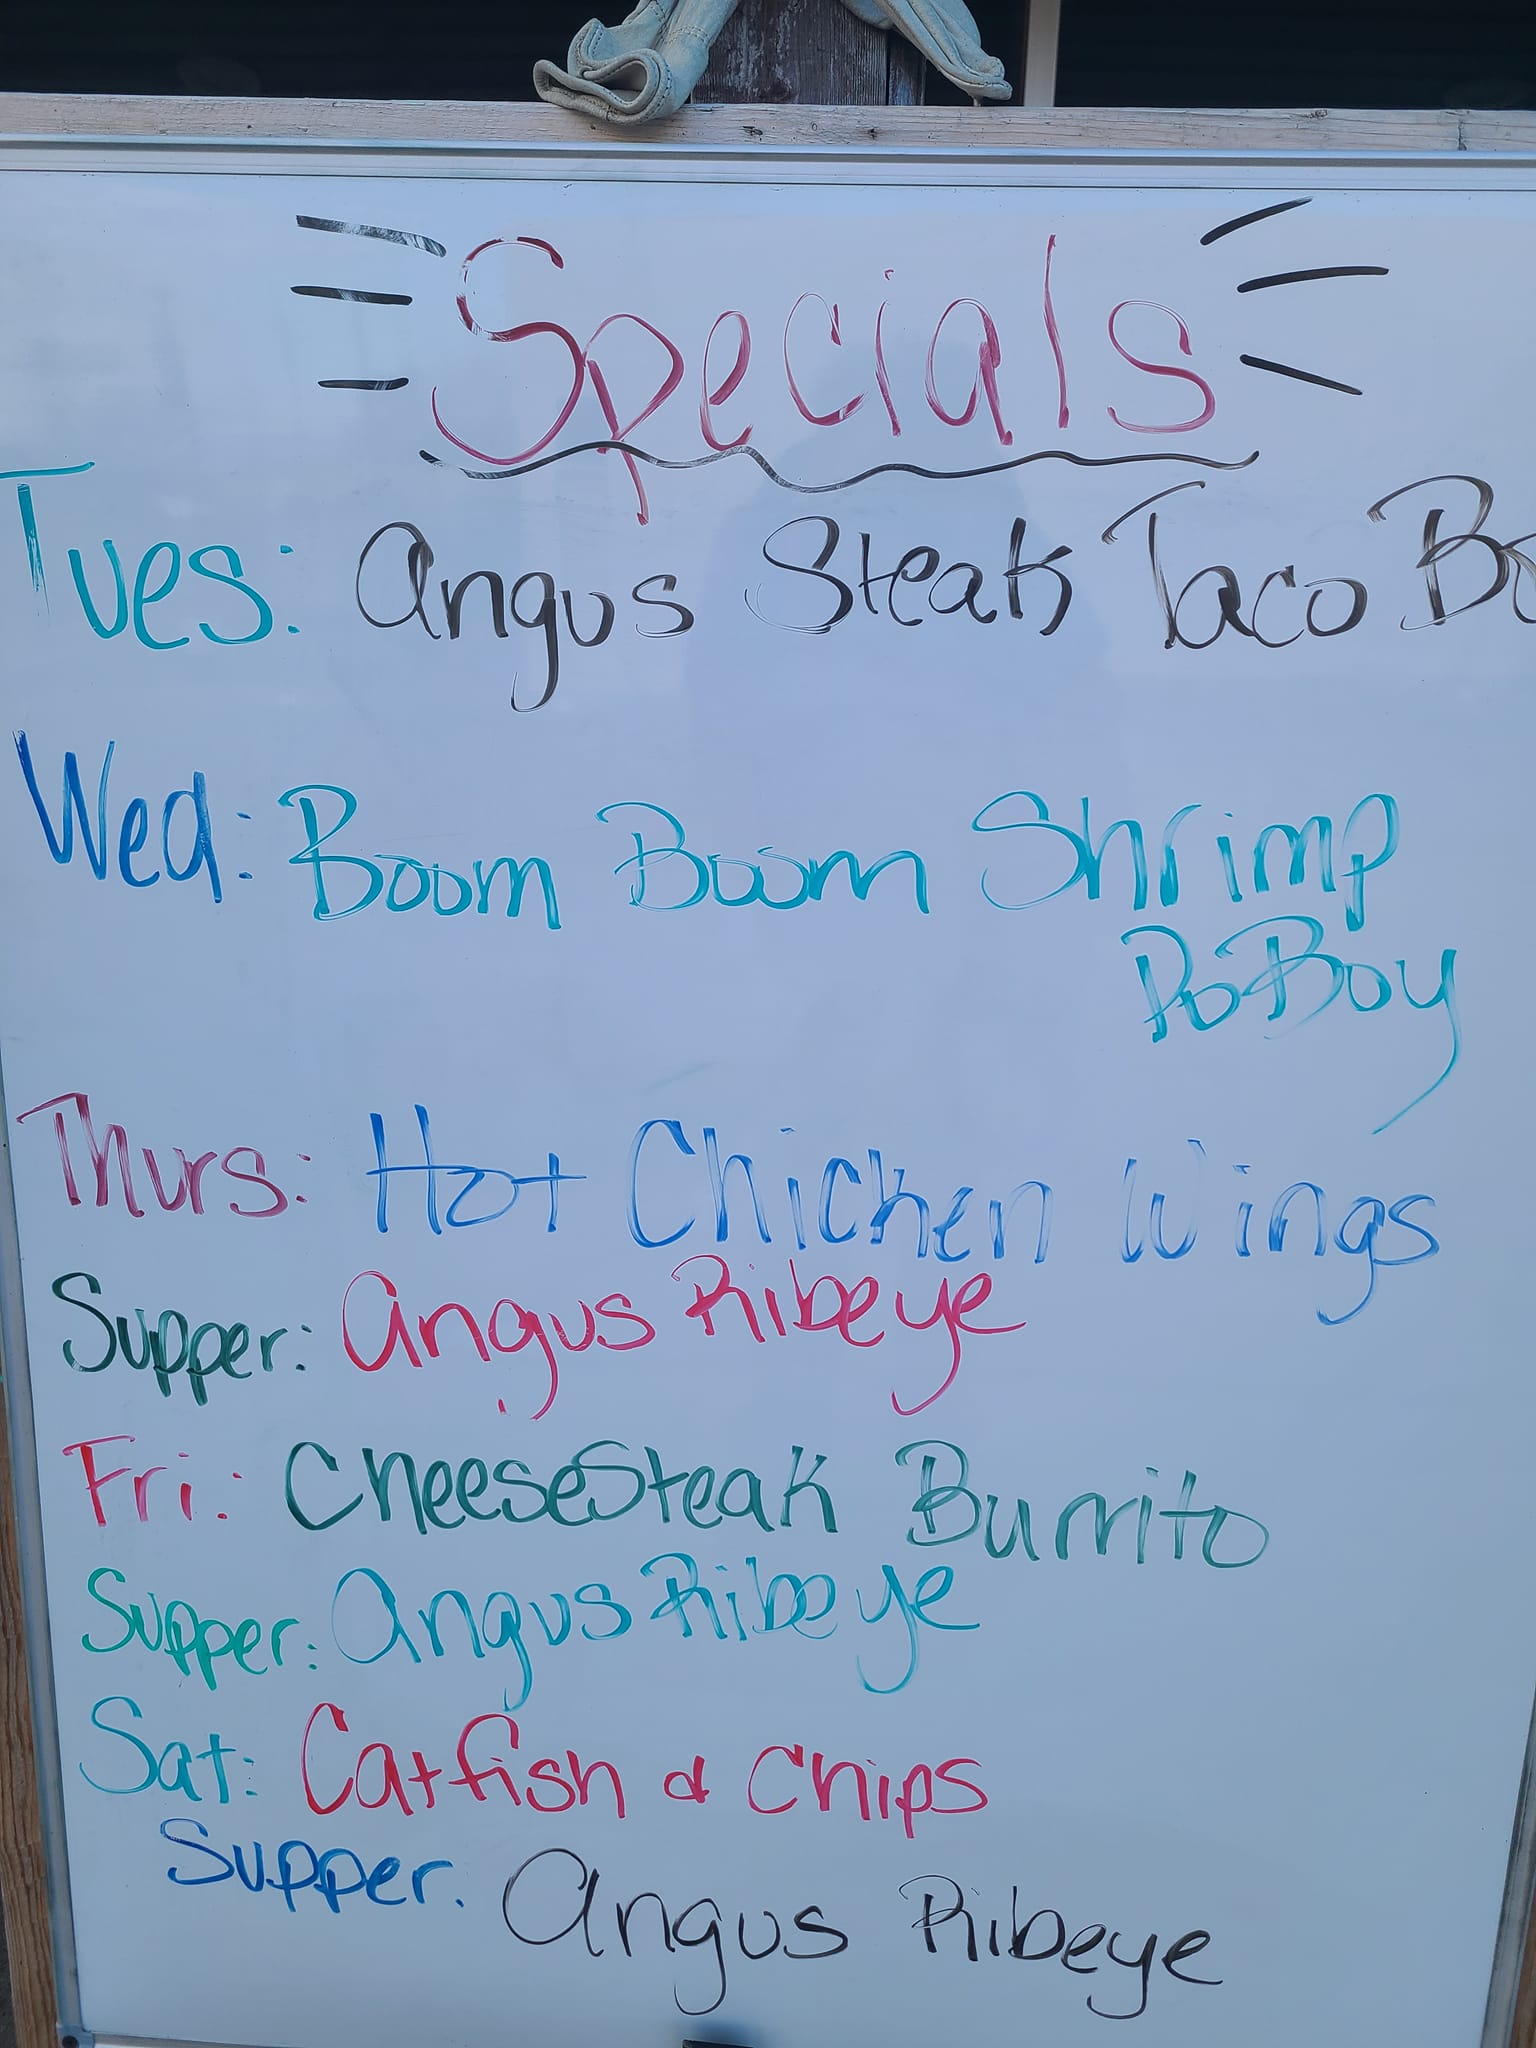 Specials
Tues: Angus Steak Taco Bo
Wed: Boom Boom Shrimp
PoBoy
Thurs: Hot Chicken Wings
Supper: Angus Ribeye
Fri: CheeseSteak Burrito
Supper: Angus Ribeye
Sat: Catfish & Chips
Supper: Angus Ribeye